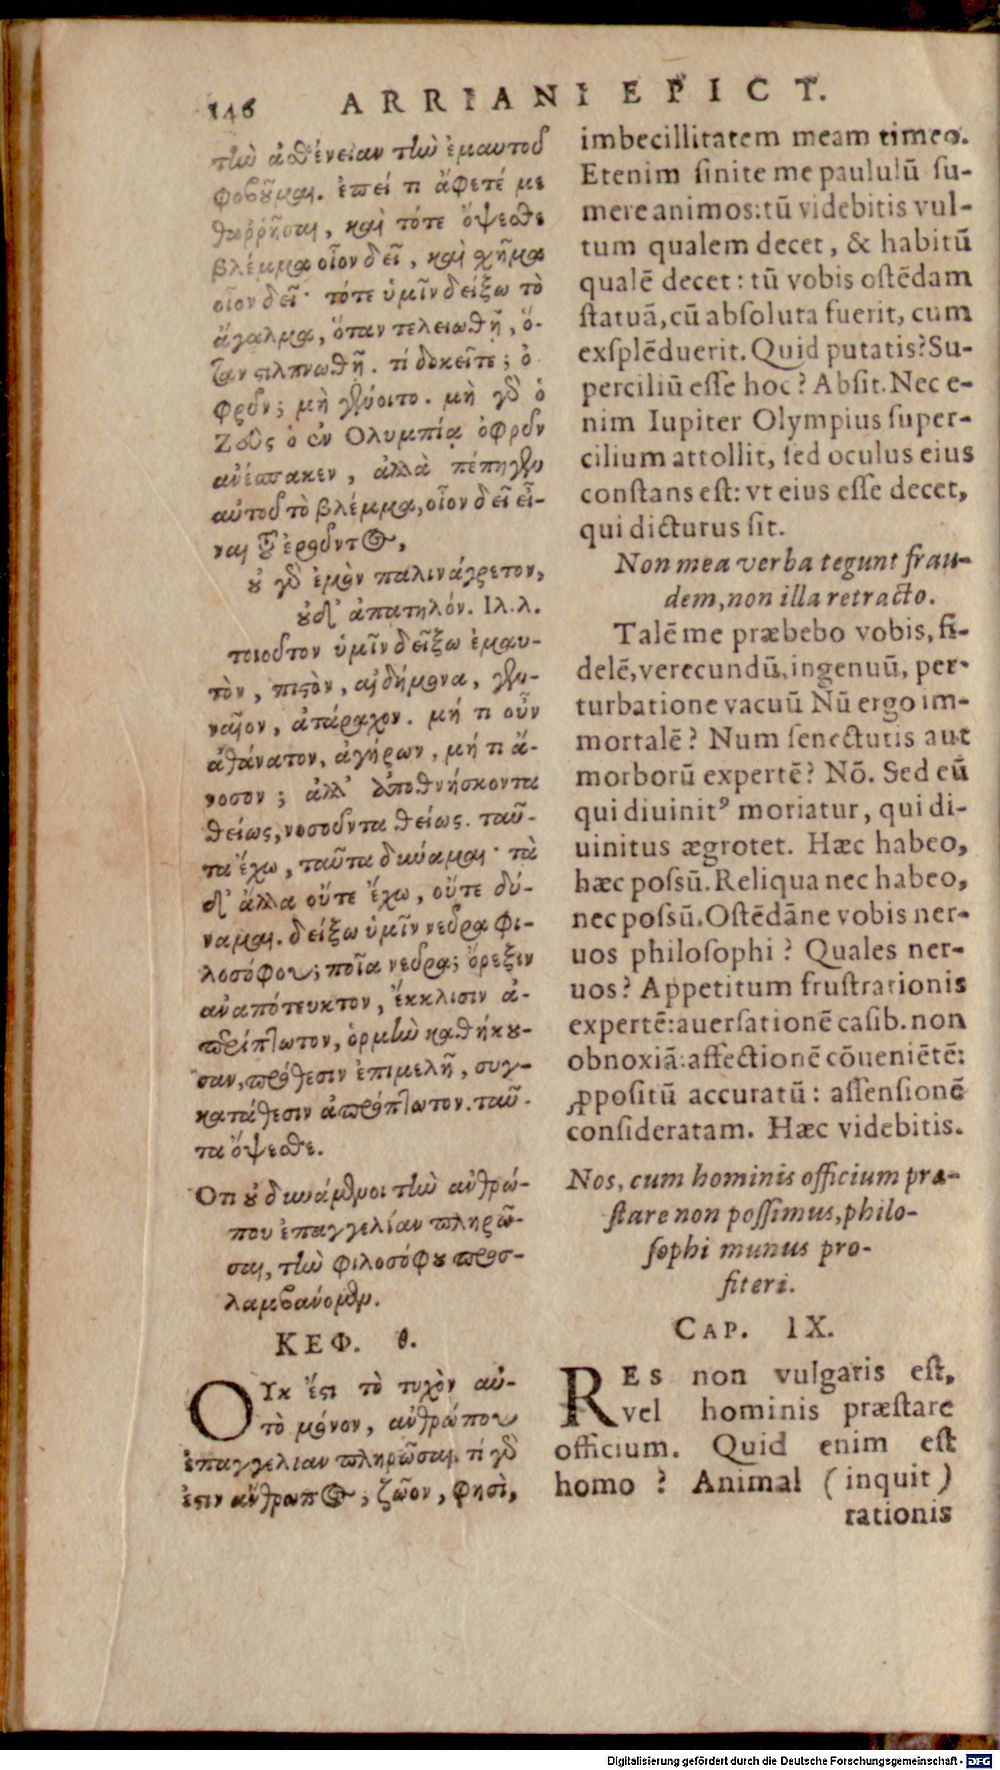 146 ARRIANI EPICT.
τὼ ἀσθένειαν τὼ ἐμαυτοῦ
φοβοῦμαι. ἐπεί τι ἄφετέ με
θαῤῥῆσαι, καὶ τότε ὄψεσθε
βλέμμα οἷον δεῖ, καὶ σχῆμα
οἷον δεῖ· τότε ὑμῖν δείξω τὸ
ἄγαλμα, ὅταν τελειωθῇ, ὅ-
ταν στιλπνωθῇ. τί δοκεῖτε; ὀ
φρῦν; μὴ γένοιτο. μὴ γὸ ὁ
Ζεὺς ὁ ἐν Ολυμπίᾳ ὀφρῦν
ἀνέσπακεν, ἀλλὰ πέπηγεν
αὐτοῦ τὸ βλέμμα, οἷον δεῖ εἶ-
ναι τοῦ ἐροῦντος,
οὐ γδ ἐμὸν παλινάγρετον,
οὐδ' ἀπατηλόν. Ιλ. λ.
τοιοῦτον ὑμῖν δείξω ἐμαυ-
τὸν, πιστὸν, αἰδήμονα, γεν-
ναῖον, ἀτάραχον. μή τι οὖν
ἀθάνατον, ἀγήρων, μή τι ἄ-
νοσον; ἀλλ' ἀποθνήσκοντα
θείως, νοσοῦντα θείως. ταῦ-
τα ἔχω, ταῦτα δύναμαι· τὰ
δ' ἄλλα οὔτε ἔχω, οὔτε δύ-
ναμαι. δείξω ὑμῖν νεῦρα φι-
λοσόφου; ποῖα νεῦρα; ὄρεξιν
ἀναπότευκτον, ἔκκλισιν ἀ-
περίπτωτον, ὁρμὼ καθήκου-
σαν, πρόθεσιν ἐπιμελῆ, συγ-
κατάθεσιν ἀπρόπτωτον. ταῦ-
τα ὄψεσθε.
Οτι οὐ δυνάμενοι τὼ ἀνθρώ-
που ἐπαγγελίαν πληρῶ-
σαι, τὼ φιλοσόφου προσ-
λαμβάνομεν.
ΚΕΦ. θ.
ΟΥκ ἔστι τὸ τυχὸν αὐ-
τὸ μόνον, ἀνθρώπου
ἐπαγγελίαν πληρῶσαι. τί γδ
ἐστιν ἄνθρωπος; ζῶον, φησὶ,
imbecillitatem meam timeo.
Etenim sinite me paululū su-
mere animos: tū videbitis vul-
tum qualem decet, & habitū
qualē decet: tū vobis ostēdam
statuā, cū absoluta fuerit, cum
exsplēduerit. Quid putatis? Su-
perciliū esse hoc? Absit. Nec e-
nim Iupiter Olympius super-
cilium attollit, sed oculus eius
constans est: vt eius esse decet,
qui dicturus sit.
Non mea verba tegunt frau-
dem, non illa retracto.
Talē me præbebo vobis, fi-
delē, verecundū, ingenuū, per-
turbatione vacuū Nū ergo im-
mortalē? Num senectutis aut
morborū expertē? Nō. Sed eū
qui diuinitꝰ moriatur, qui di-
uinitus ægrotet. Hæc habeo,
hæc possū. Reliqua nec habeo,
nec possū. Ostēdāne vobis ner-
uos philosophi? Quales ner-
uos? Appetitum frustrationis
expertē: auersationē casib. non
obnoxiā: affectionē cōueniētē:
ꝓpositū accuratū: assensionē
consideratam. Hæc videbitis.
Nos, cum hominis officium præ-
stare non possimus, philo-
sophi munus pro-
fiteri.
CAP. IX.
RES non vulgaris est,
vel hominis præstare
officium. Quid enim est
homo? Animal (inquit)
rationis
Digitalisierung gefördert durch die Deutsche Forschungsgemeinschaft - DFG